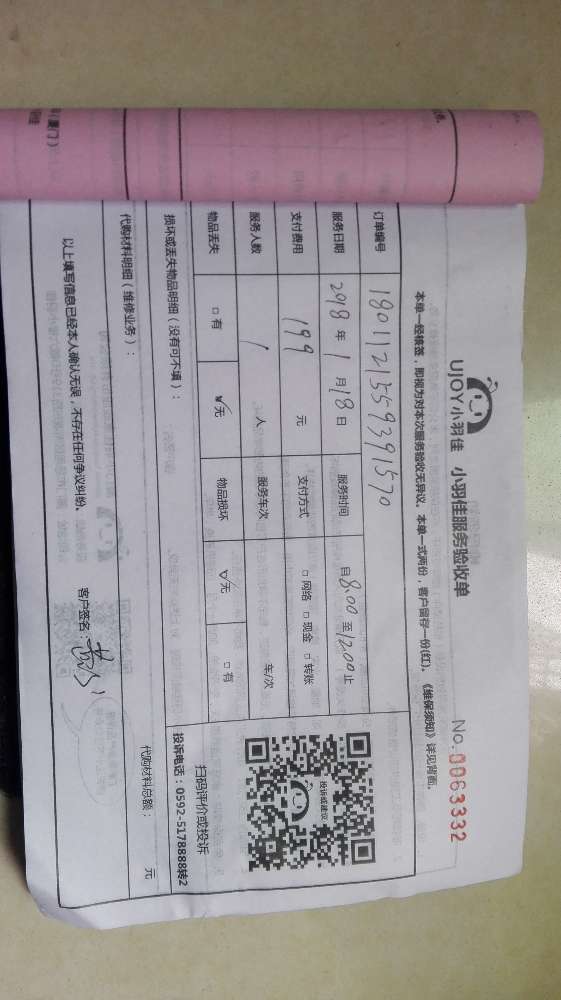 UJOY小羽佳 小羽佳服务验收单 No.0063332
本单一经核签，即视为对本次服务验收无异议。本单一式两份，客户留存一份(红)。《维保须知》详见背面。
订单编号 1801121559391570
服务日期 2018 年 1 月 18 日 服务时间 自 8:00 至 12:00 止
支付费用 199 元 支付方式 □网络 □现金 □转账
服务人数 1 人 服务车次 车/次
物品丢失 □有 ☑无 物品损坏 ☑无 □有
损坏或丢失物品明细（没有可不填）：
投诉或建议
扫码评价或投诉
投诉电话：0592-5178888转2
代购材料明细（维修业务）： 代购材料总额： 元
以上填写信息已经本人确认无误，不存在任何争议纠纷。 客户签名：